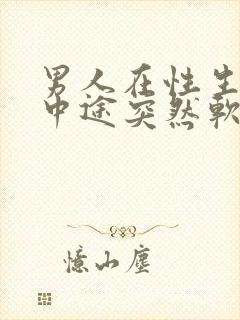 男人在性生
中途突然軟
憶山塵